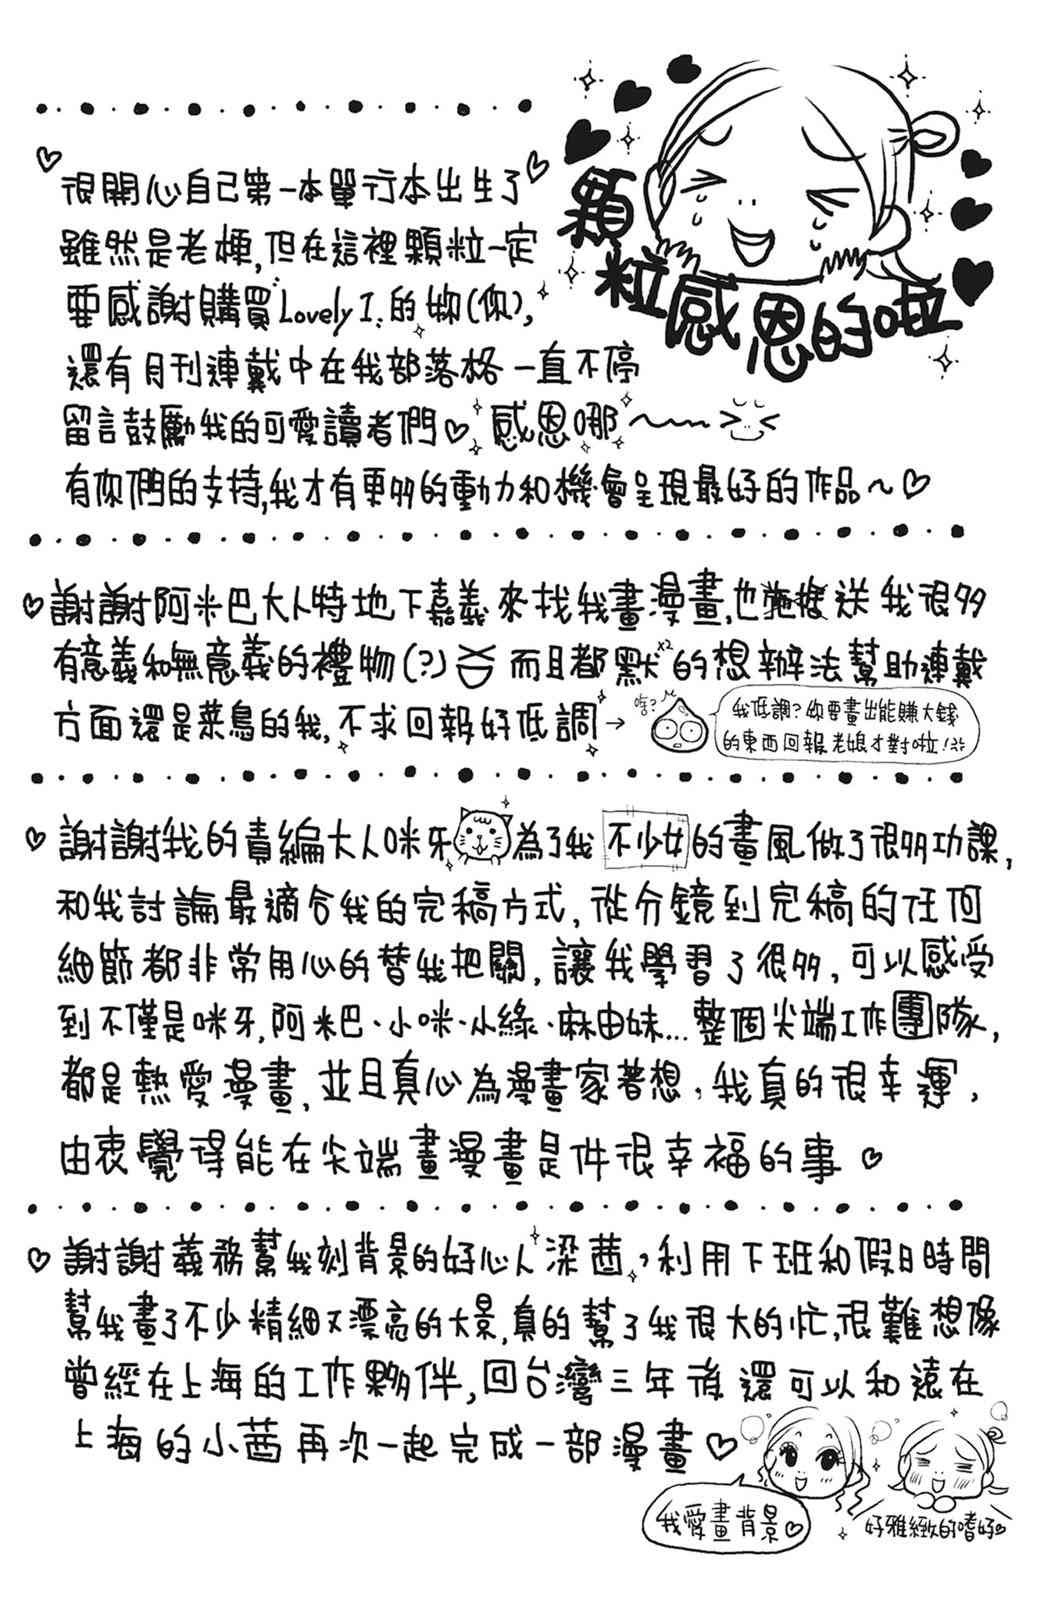 顆粒感恩的啦
很開心自己第一本單行本出生了
雖然是老梗,但在這裡顆粒一定
要感謝購買Lovely I.的妳(你),
還有月刊連載中在我部落格一直不停
留言鼓勵我的可愛讀者們♡感恩哪～
有你們的支持,我才有更多的動力和機會呈現最好的作品～♡
♡謝謝阿米巴大人特地下嘉義來找我畫漫畫,也拖送我很多
有意義和無意義的禮物(?)而且都默x2的想辦法幫助連載
方面還是菜鳥的我,不求回報好低調→
啥?
我低調?妳要畫出能賺大錢
的東西回報老娘才對啦!
♡謝謝我的責編大人咪牙為了我不少女的畫風做了很多功課,
和我討論最適合我的完稿方式,從分鏡到完稿的任何
細節都非常用心的替我把關,讓我學習了很多,可以感受
到不僅是咪牙,阿米巴、小咪、小綠、麻由妹...整個尖端工作團隊,
都是熱愛漫畫,並且真心為漫畫家著想,我真的很幸運,
由衷覺得能在尖端畫漫畫是件很幸福的事♡
♡謝謝義務幫我刻背景的好心人梁茜,利用下班和假日時間
幫我畫了不少精細又漂亮的大景,真的幫了我很大的忙,很難想像
曾經在上海的工作夥伴,回台灣三年後還可以和遠在
上海的小茜再次一起完成一部漫畫♡
我愛畫背景♡
好雅緻的嗜好♡